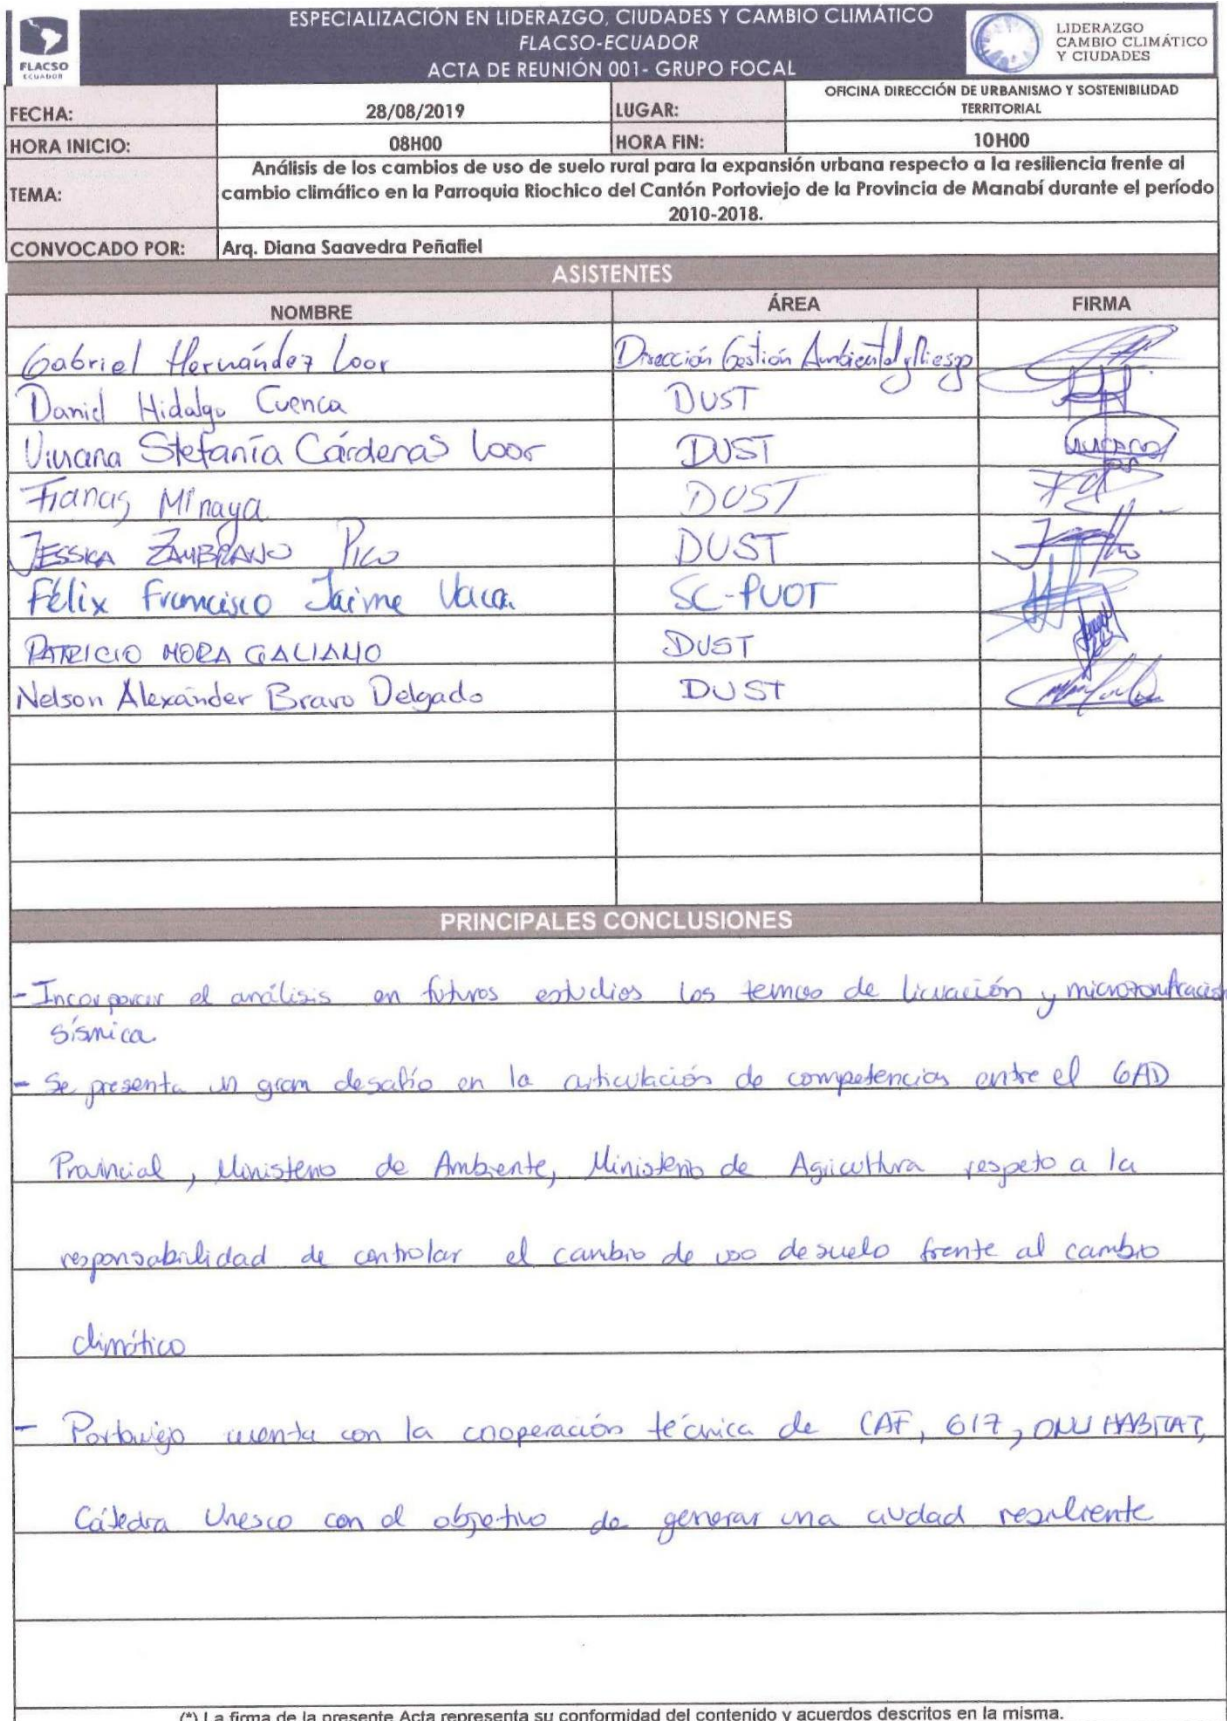 ESPECIALIZACIÓN EN LIDERAZGO, CIUDADES Y CAMBIO CLIMÁTICO
FLACSO-ECUADOR
ACTA DE REUNIÓN 001- GRUPO FOCAL
FLACSO
ECUADOR
LIDERAZGO
CAMBIO CLIMÁTICO
Y CIUDADES
FECHA: 28/08/2019 LUGAR: OFICINA DIRECCIÓN DE URBANISMO Y SOSTENIBILIDAD
TERRITORIAL
HORA INICIO: 08H00 HORA FIN: 10H00
TEMA: Análisis de los cambios de uso de suelo rural para la expansión urbana respecto a la resiliencia frente al
cambio climático en la Parroquia Riochico del Cantón Portoviejo de la Provincia de Manabí durante el período
2010-2018.
CONVOCADO POR: Arq. Diana Saavedra Peñafiel
ASISTENTES
NOMBRE ÁREA FIRMA
Gabriel Hernández Loor Dirección Gestión Ambiental y Riesgo
Daniel Hidalgo Cuenca DUST
Viviana Stefanía Cárdenas Loor DUST
Minaya DUST
JESSICA ZAMBRANO PICO DUST
Félix Francisco Jaime Vaca. SC-PUOT
PATRICIO MORA GALIANO DUST
Nelson Alexánder Bravo Delgado DUST
PRINCIPALES CONCLUSIONES
- Incorporar el análisis en futuros estudios los temas de licuación y microzonificación
sísmica.
- Se presenta un gran desafío en la articulación de competencias entre el GAD
Provincial, Ministerio de Ambiente, Ministerio de Agricultura respeto a la
responsabilidad de controlar el cambio de uso de suelo frente al cambio
climático
- Portoviejo cuenta con la cooperación técnica de CAF, GIZ, ONU HABITAT,
Cátedra Unesco con el objetivo de generar una ciudad resiliente
(*) La firma de la presente Acta representa su conformidad del contenido y acuerdos descritos en la misma.